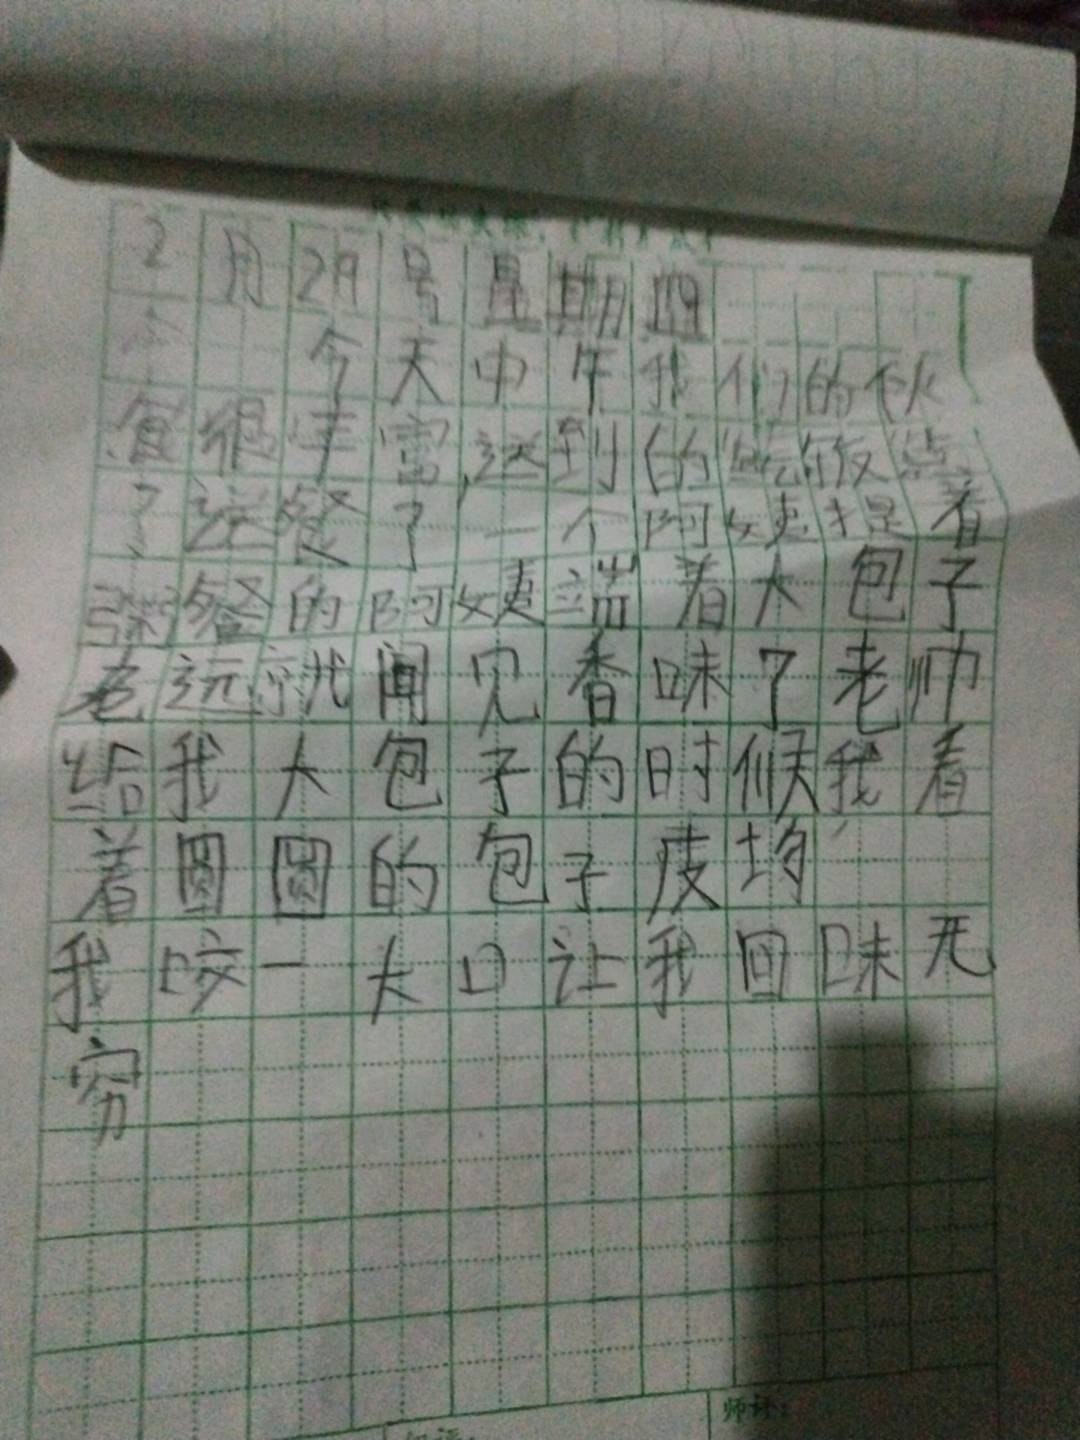 2月29号星期四
今天中午我们的伙
食很丰富,送到的饭
了送餐了一个阿姨提着
粥餐的阿姨端着大包子
老远就闻见香味了老师
给我大包子的时候我看
着圆圆的包子皮
我咬一大口让我回味无
穷
师评: